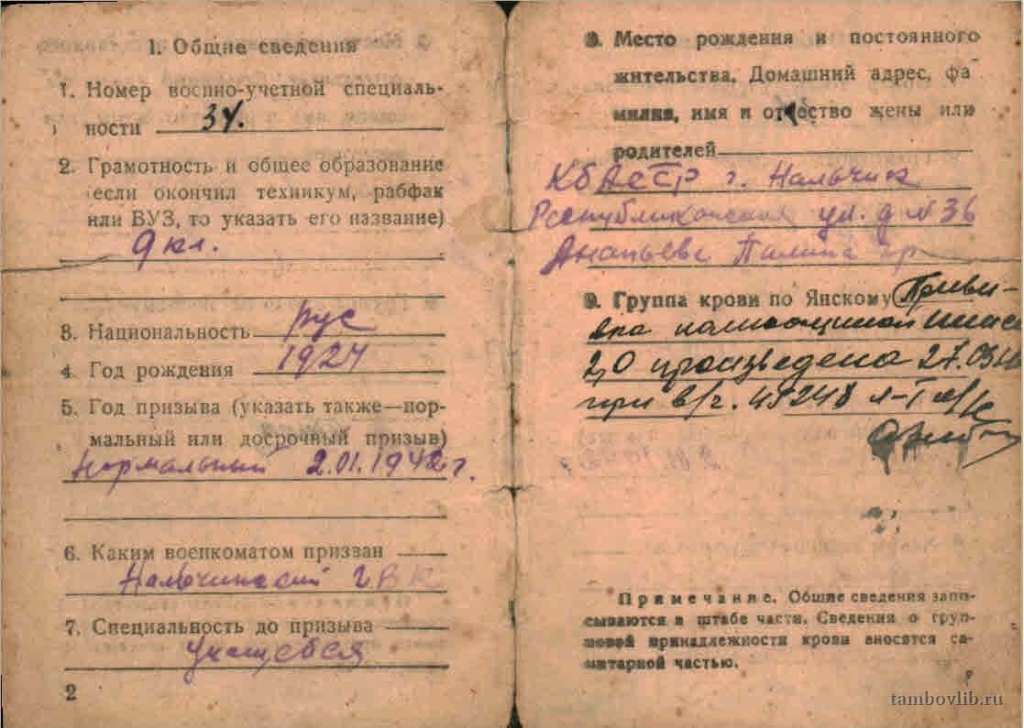 1. Общие сведения
1. Номер военно-учетной специаль-
ности 34.
2. Грамотность и общее образование
(если окончил техникум, рабфак
или ВУЗ, то указать его название)
9 кл.
3. Национальность рус
4. Год рождения 1924
5. Год призыва (указать также—нор-
мальный или досрочный призыв)
Нормальный 2.01.1942 г.
6. Каким военкоматом призван
Нальчикский ГВК
7. Специальность до призыва
учащийся
2
8. Место рождения и постоянного
жительства. Домашний адрес, фа
милия, имя и отчество жены или
родителей
КБАССР г. Нальчик
Республиканская ул. д № 36
Ананьева Полина Гр
9. Группа крови по Янскому Приви-
вка
2,0 произведена 27.03
при в/ч. 45248
Примечание. Общие сведения запи-
сываются в штабе части. Сведения о груп-
повой принадлежности крови вносятся са-
нитарной частью.
tambovlib.ru